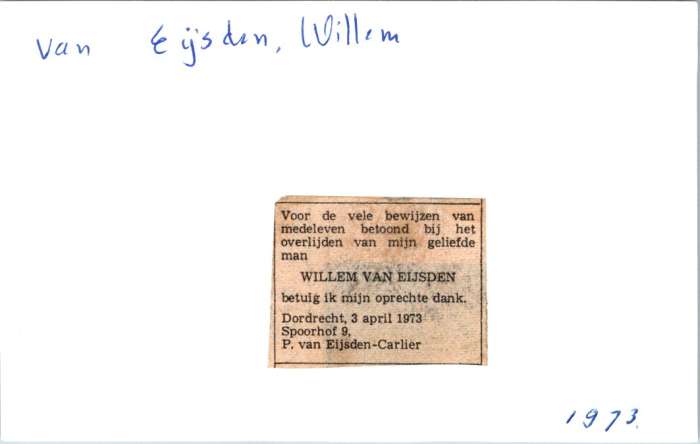 van Eijsden, Willem
Voor de vele bewijzen van
medeleven betoond bij het
overlijden van mijn geliefde
man
WILLEM VAN EIJSDEN
betuig ik mijn oprechte dank.
Dordrecht, 3 april 1973
Spoorhof 9,
P. van Eijsden-Carlier
1973.